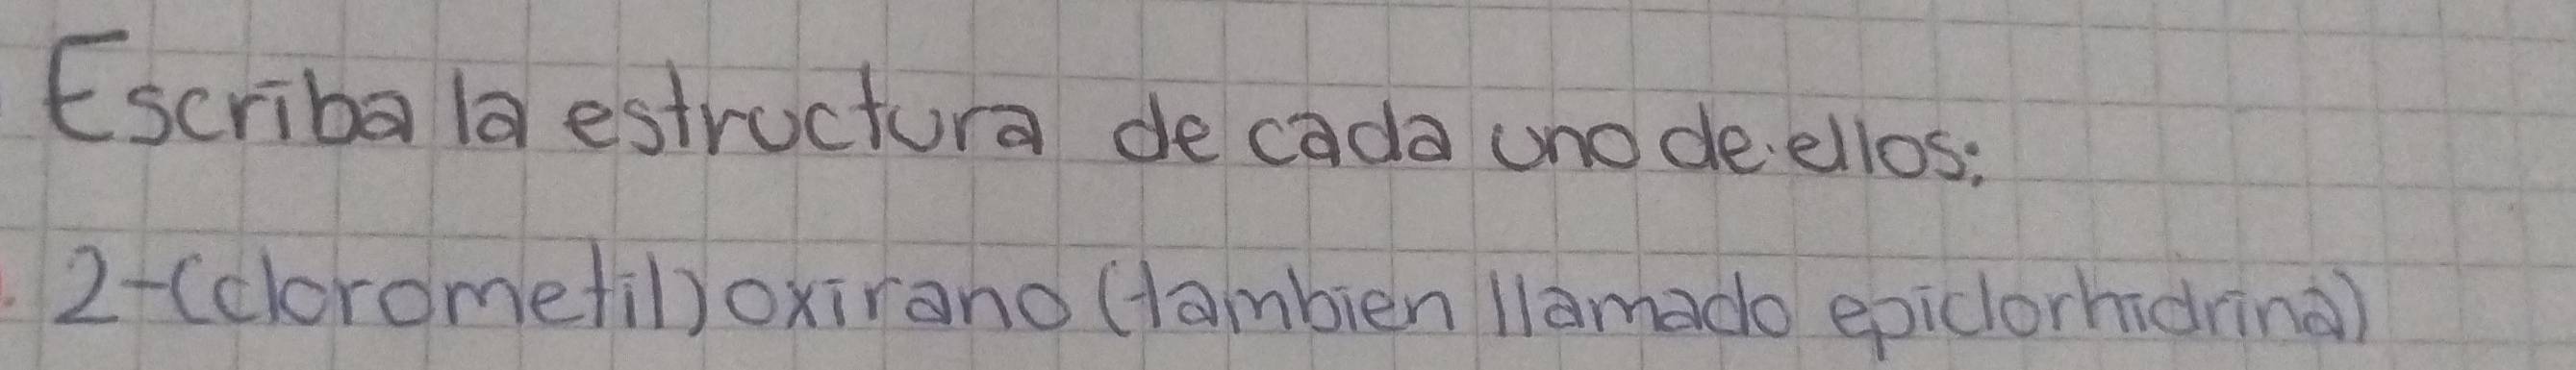 Escriba la estructura de cada uno de ellos:
2-(clorometil) oxirano (tambien llamado epiclorhidrina)